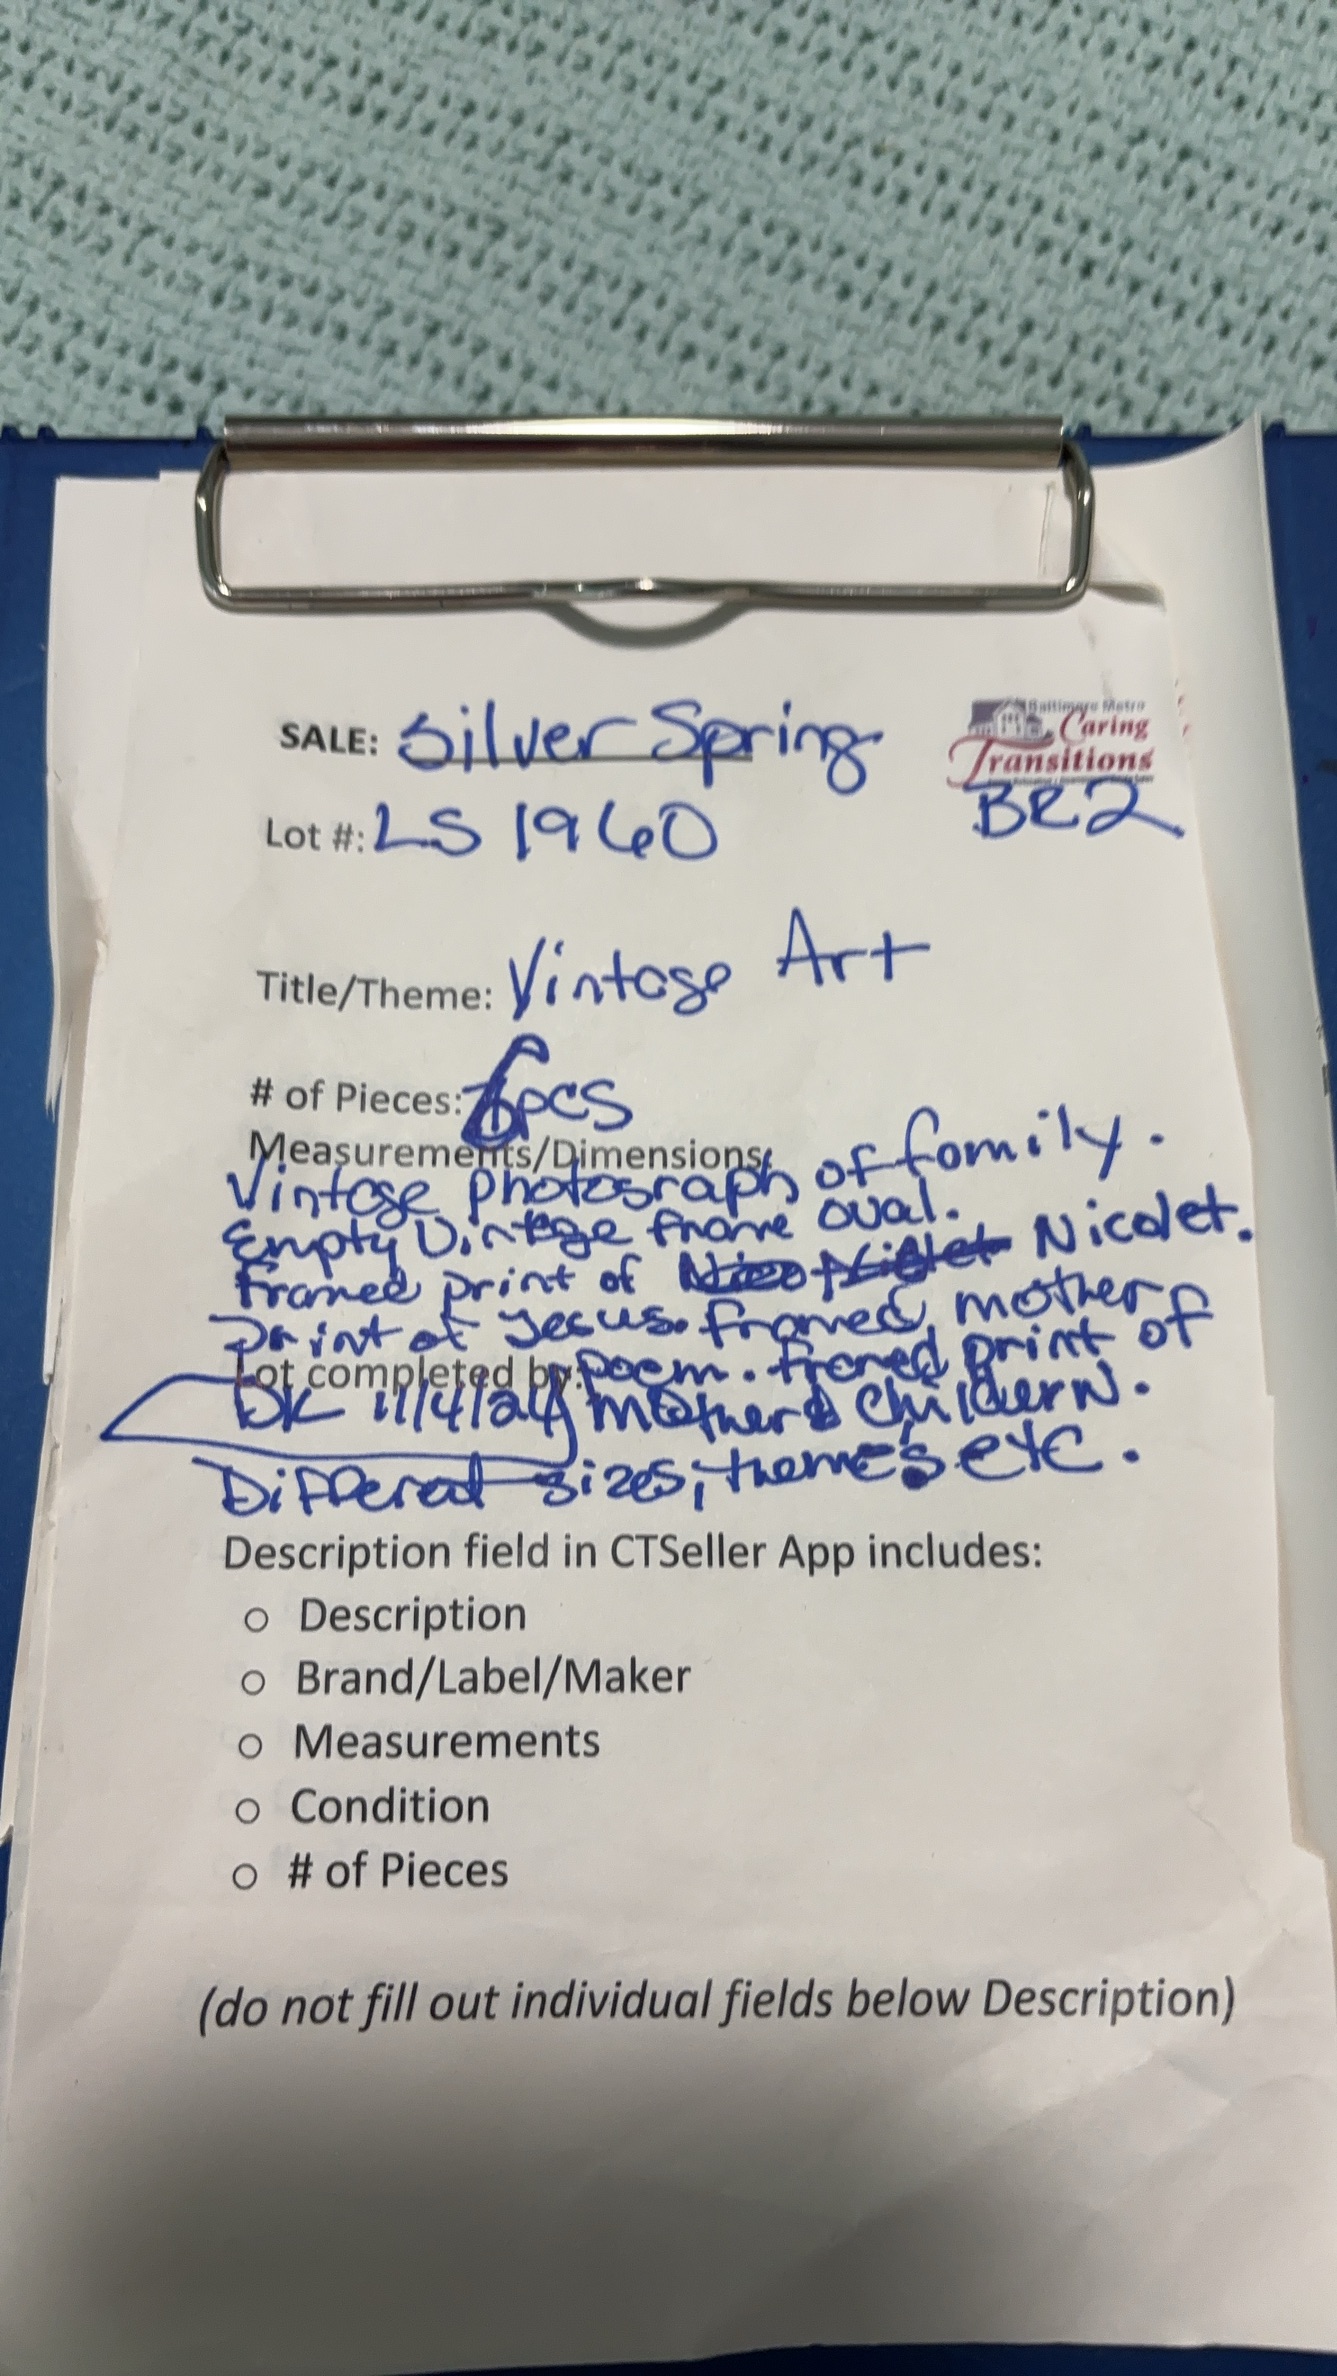 SALE: Silver Spring
Baltimore Metro
Caring
Transitions
Lot #: LS 1960
BR2
Title/Theme: Vintage Art
# of Pieces: 6pcs
Measurements/Dimensions:
Vintage photograph of family.
Empty Vintage frame oval.
Framed print of Nicolet.
print of Jesus. framed mother
Lot completed by: poem. framed print of
DK 11/4/24 mother & Childern.
Different sizes, themes etc.
Description field in CTSeller App includes:
o Description
o Brand/Label/Maker
o Measurements
o Condition
o # of Pieces
(do not fill out individual fields below Description)